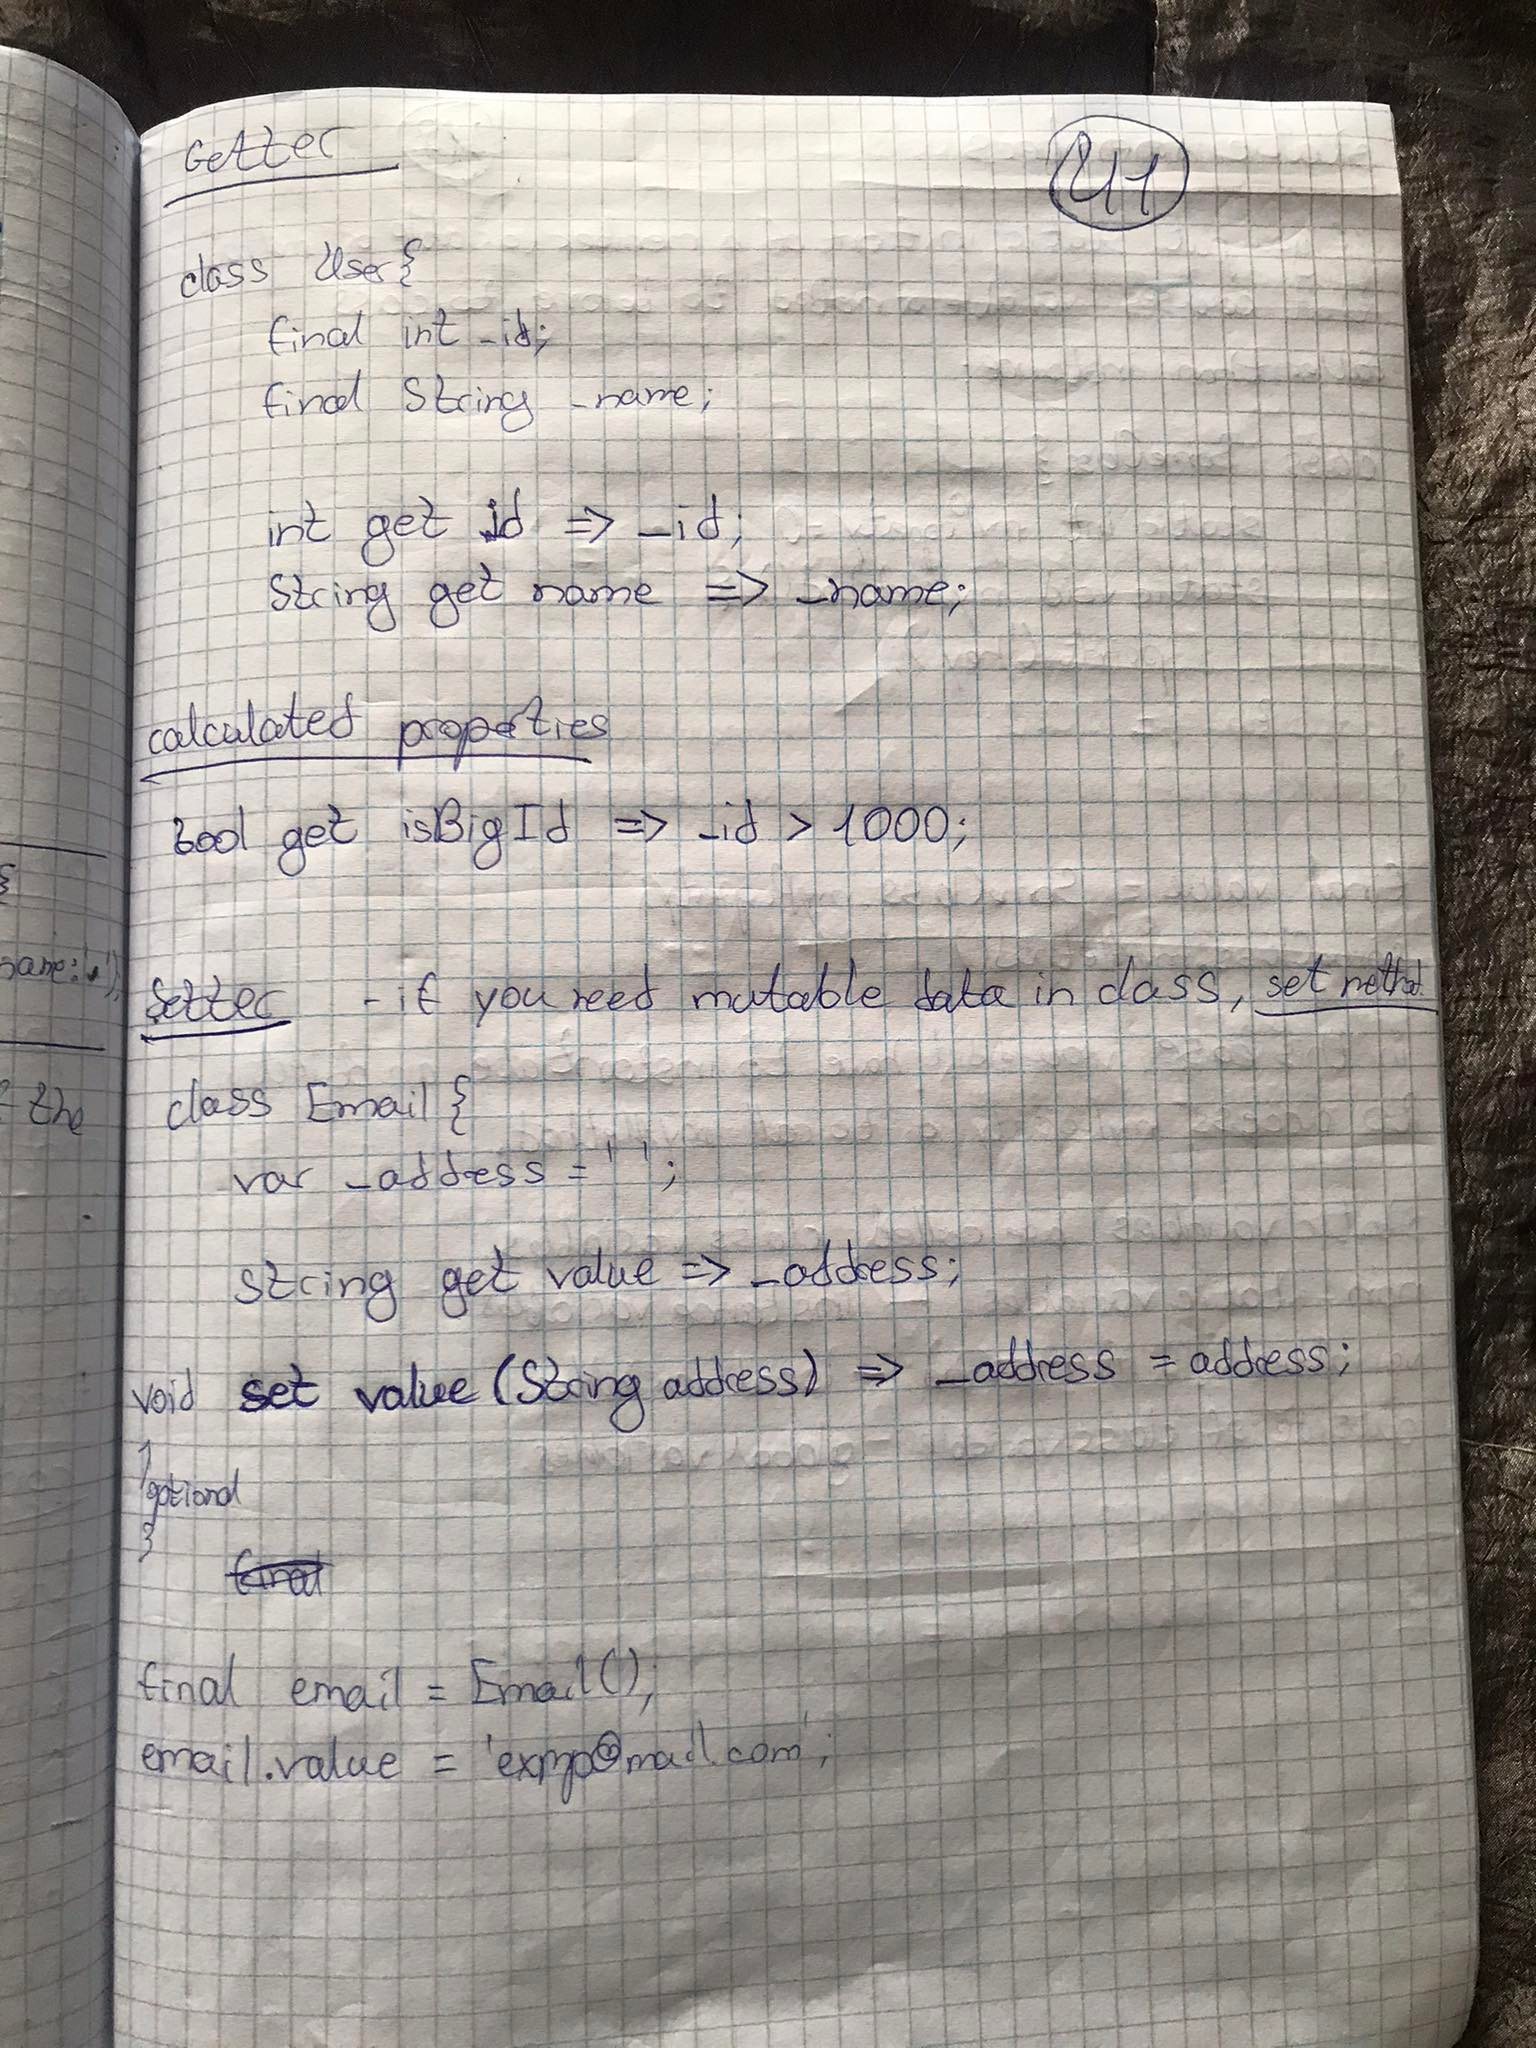 Getter
41
class User{
final int _id;
final String _name;
int get id => _id;
String get name => _name;
calculated properties
bool get isBigId => _id > 1000;
Setter - if you need mutable data in class, set method
class Email{
var _address = '';
String get value => _address;
void set value (String address) => _address = address;
optional
}
final
final email = Email();
email.value = 'exmp@mail.com';
{
name:
t the